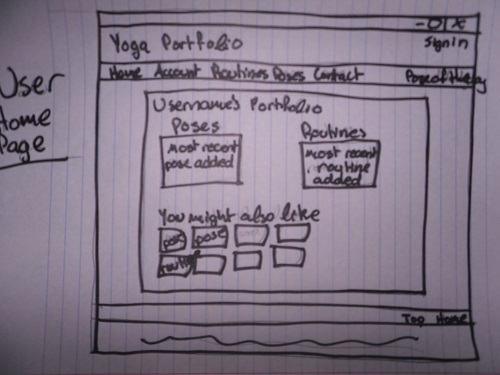 User Home Page
- O X
Yoga Portfolio
Sign in
Home Account Routines Poses Contact Pose of the day
Username's Portfolio
Poses
Routines
Most recent
pose added
Most recent
routine
added
You might also like
pose pose
routine
Top Home